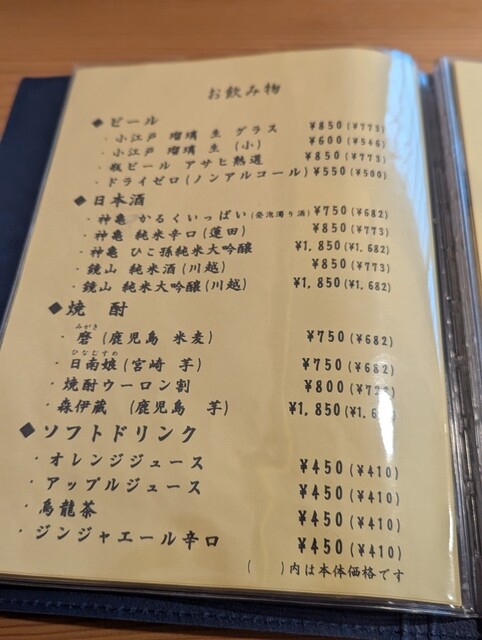 お飲み物
◆ビール
・小江戸 瑠璃 生 グラス ¥850(¥773)
・小江戸 瑠璃 生 (小) ¥600(¥546)
・瓶ビール アサヒ熟選 ¥850(¥773)
・ドライゼロ(ノンアルコール) ¥550(¥500)
◆日本酒
・神亀 かるくいっぱい(発泡濁り酒) ¥750(¥682)
・神亀 純米辛口(蓮田) ¥850(¥773)
・神亀 ひこ孫純米大吟醸 ¥1,850(¥1,682)
・鏡山 純米酒(川越) ¥850(¥773)
・鏡山 純米大吟醸(川越) ¥1,850(¥1,682)
◆焼 酎
みがき
・磨(鹿児島 米麦) ¥750(¥682)
ひなむすめ
・日南娘(宮崎 芋) ¥750(¥682)
・焼酎ウーロン割 ¥800
・森伊蔵 (鹿児島 芋) ¥1,850
◆ソフトドリンク
・オレンジジュース ¥450(¥410)
・アップルジュース ¥450(¥410)
・烏龍茶 ¥450(¥410)
・ジンジャエール辛口 ¥450(¥410)
( )内は本体価格です